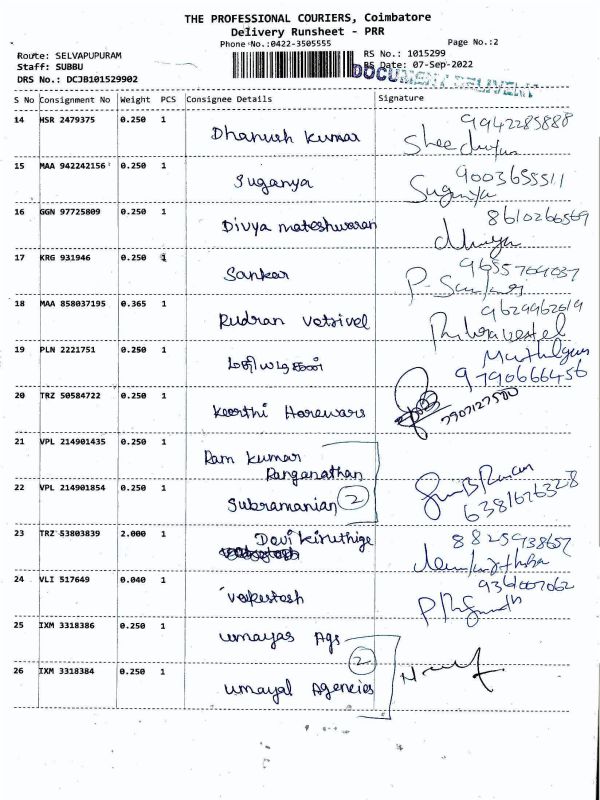 THE PROFESSIONAL COURIERS, Coimbatore
Delivery Runsheet - PRR
Phone No.:0422-3505555
Page No.:2
Route: SELVAPUPURAM
RS No.: 1015299
Staff: SUBBU
RS Date: 07-Sep-2022
DRS No.: DCJB101529902
DOCUMENT DELIVERY
S No Consignment No Weight PCS Consignee Details Signature
14 HSR 2479375 0.250 1 Dhanush Kumar 9942285888
15 MAA 942242156 0.250 1 Suganya 9003655511
Suganya
16 GGN 97725809 0.250 1 Divya mateshwaran 8610266569
Dhivya
17 KRG 931946 0.250 1 Sankar 9655704037
P-Sankar
18 MAA 858037195 0.365 1 Rudran Vetrivel 9629962619
19 PLN 2221751 0.250 1 மதியழகன்
9790666456
20 TRZ 50584722 0.250 1 Keerthi Harewars
21 VPL 214901435 0.250 1 Ram Kumar
Ranganathan
22 VPL 214901854 0.250 1 Subramanian 2
6381676328
23 TRZ 53803839 2.000 1 Devi Kiruthige 8825938657
24 VLI 517649 0.040 1 Venkatesh 9361007062
25 IXM 3318386 0.250 1 Umayas Ags
2
26 IXM 3318384 0.250 1 Umayal Agencies